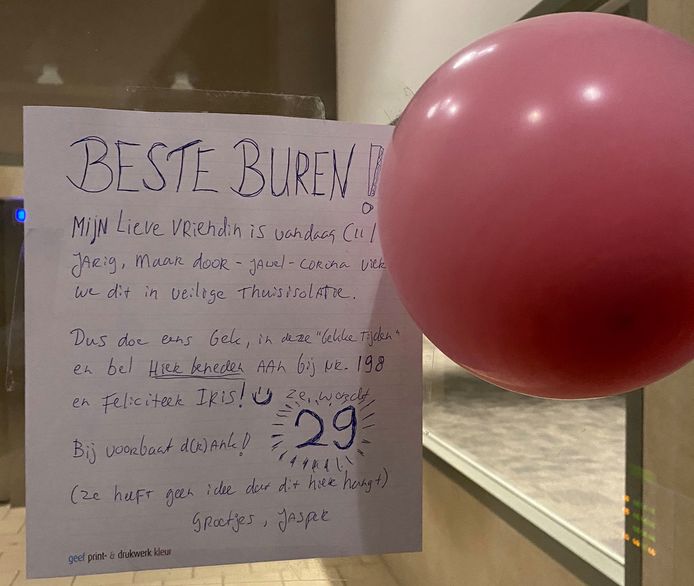 BESTE BUREN!
Mijn Lieve Vriendin is vandaag (11/
Jarig, maar door - jawel - corona vier
we dit in veilige Thuisisolatie.
Dus doe eens Gek, in deze "Gekke Tijden"
en bel Hier beneden aan bij nr. 198
en Feliciteer IRIS! ze wordt
29
Bij voorbaat d(r)ank!
(ze heeft geen idee dat dit hier hangt)
Groetjes, Jasper
geef print- & drukwerk kleur